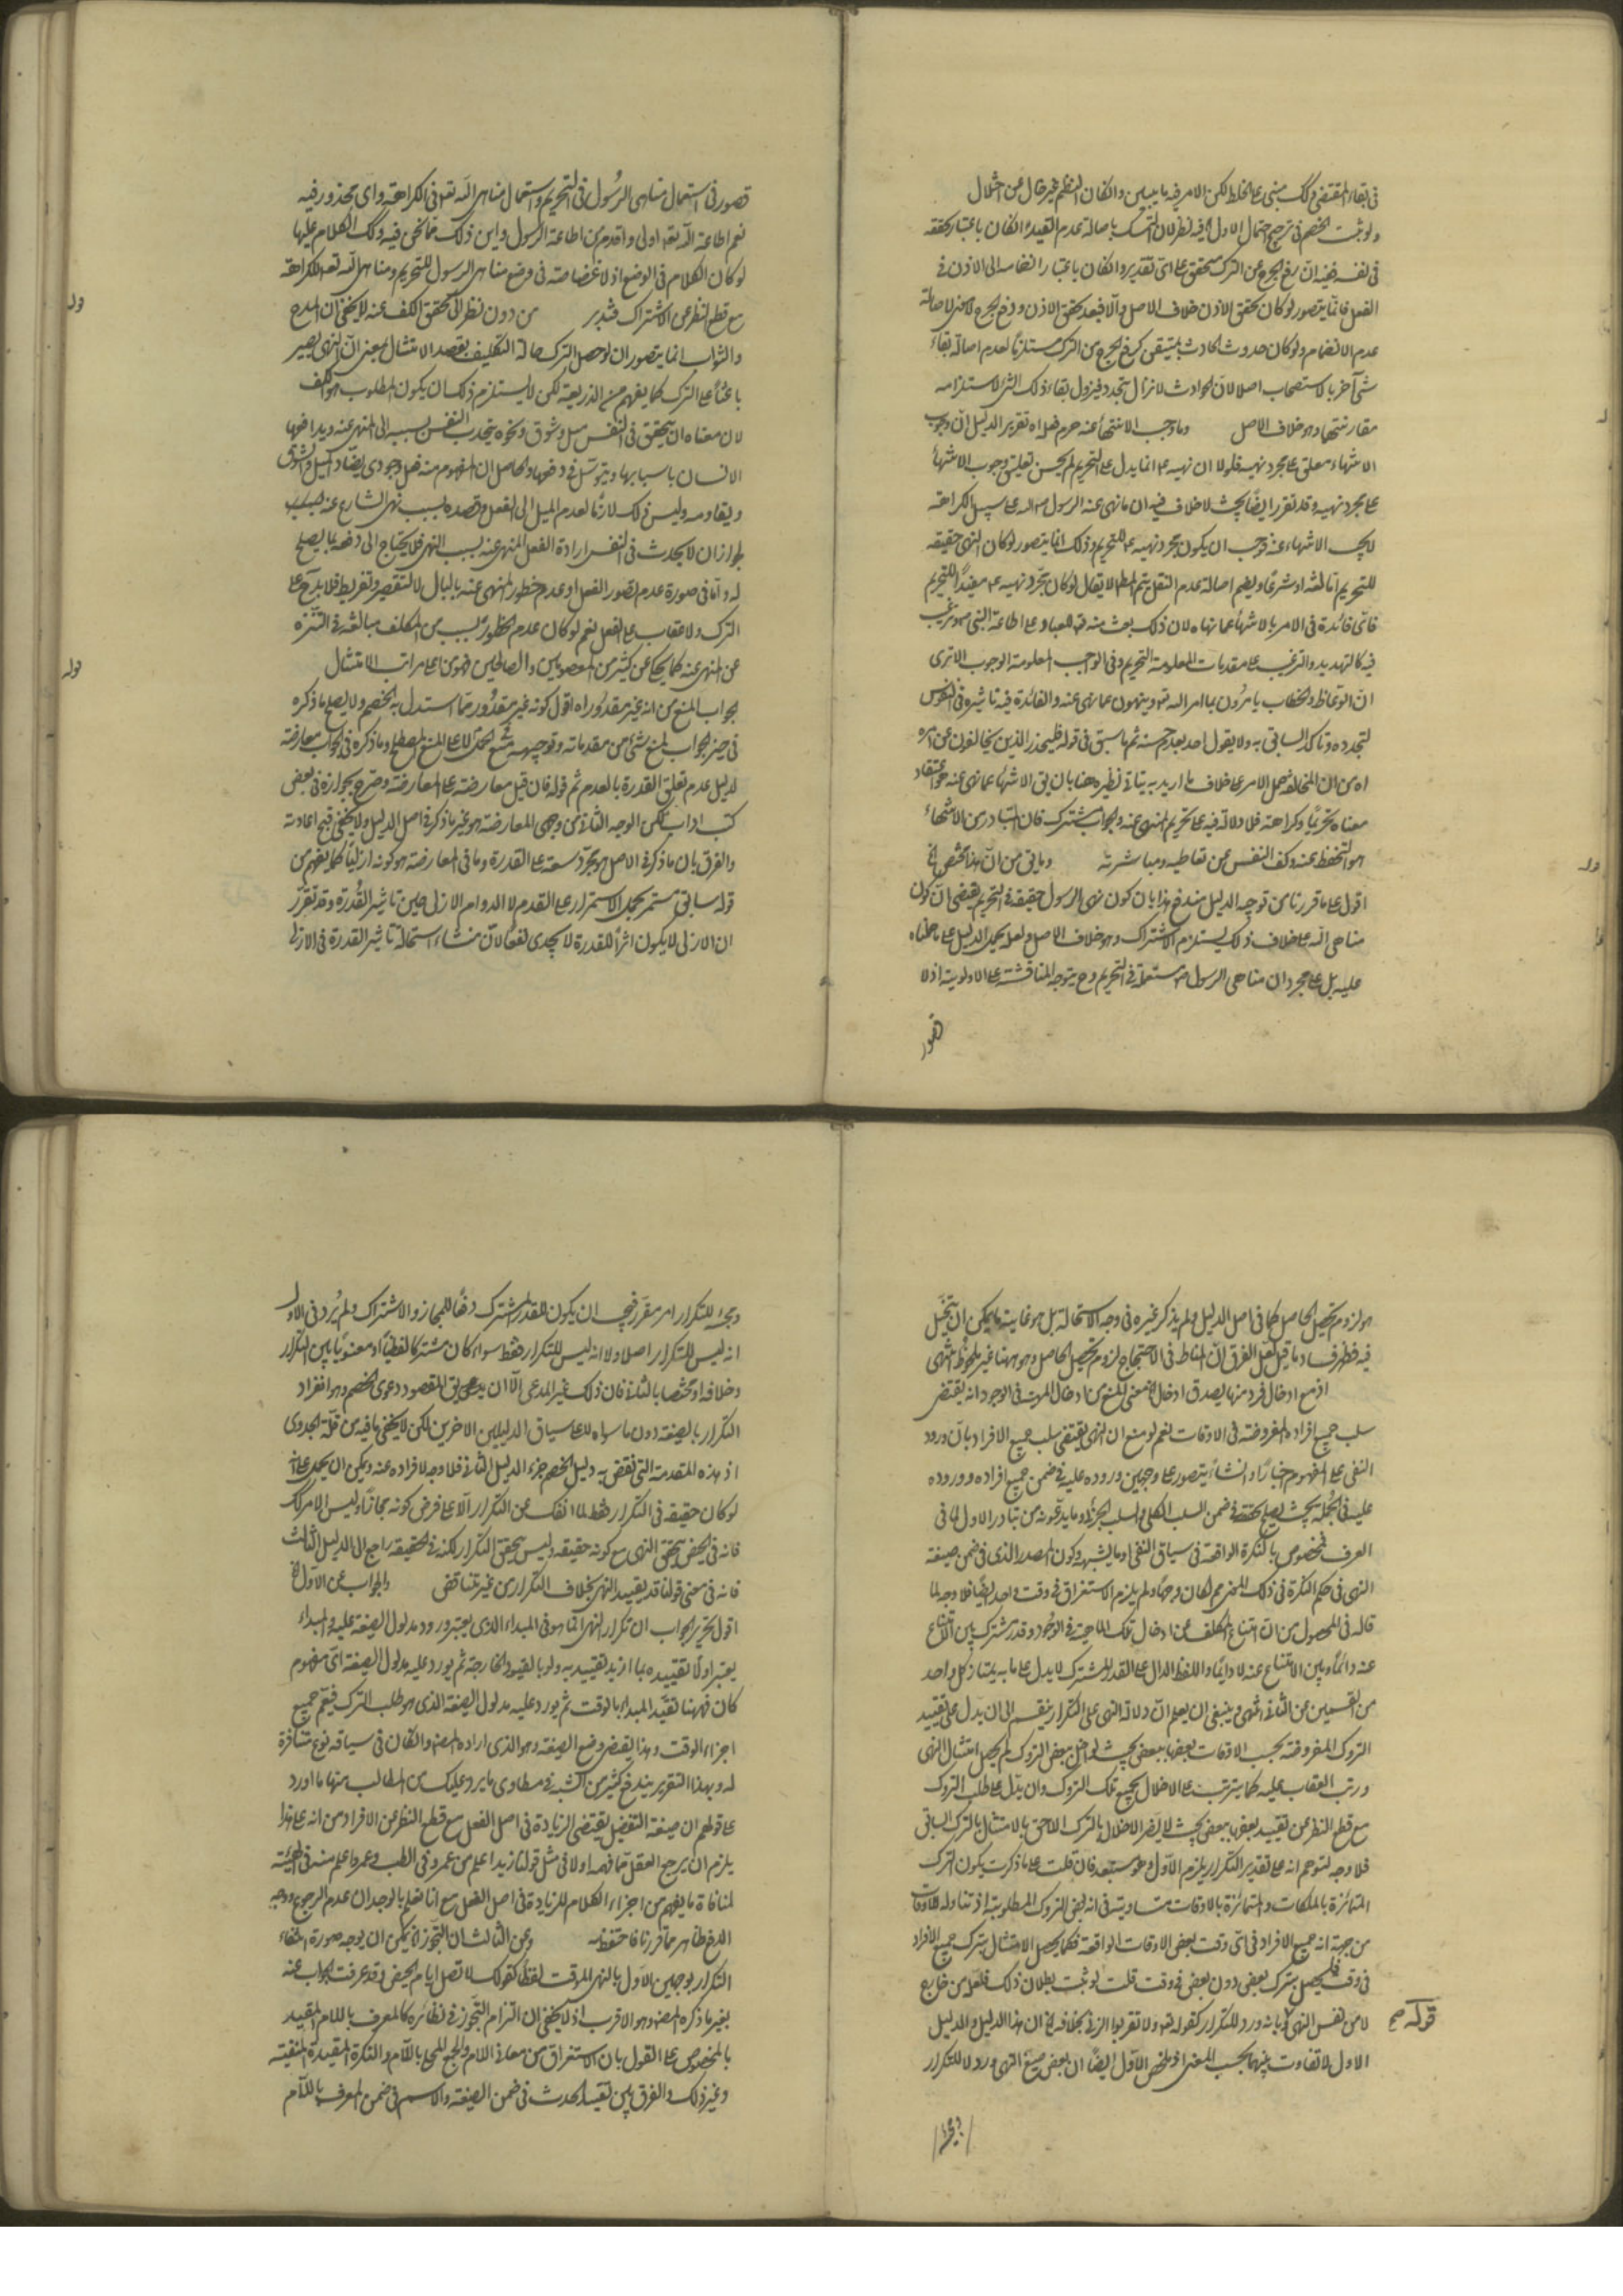 في بقاء المقتضي وذلك مبني على الخلط لكن الامر فيه ما يبين وان كان النظم غير خال عن اختلال
ولو ثبت الخصم في ترجيح احتمال الاول ففيه نظر لان التمسك باصالة عدم التقييد وان كان باعتبار تحققه
في نفسه ففيه ان رفع الحرج عن الترك متحقق على اي تقدير وان كان باعتبار انضمامه الى الاذن في
الفعل فانما يتصور لو كان تحقق الاذن خلاف الاصل والا فبعد تحقق الاذن ورفع الحرج لا معنى لاصالة
عدم الانضمام ولو كان حدوث الحادث يستبقى كرفع الحرج عن الترك مستلزما لعدم اصالة بقاء
شيء آخر بالاستصحاب اصلا لان الحوادث لا تزال تتجدد فيزول بقاء ذلك الشيء لاستلزامه
مقارنتها وهو خلاف الاصل وما وجب الانتهاء عنه حرم فعله اه تقرير الدليل ان وجوب
الانتهاء معلق على مجرد نهيه فلولا ان نهيه ع انما يدل على التحريم لم يحسن تعليق وجوب الانتهاء
على مجرد نهيه وقد تقرر ايضا بحيث لا خلاف فيه ان ما نهى عنه الرسول ص على سبيل الكراهة
لا يجب الانتهاء عنه فوجب ان يكون مجرد نهيه ع للتحريم وذلك انما يتصور لو كان النهي حقيقة
للتحريم اما لغة او شرعا وبضم اصالة عدم النقل يتم المط لا يقال لو كان مجرد نهيه ع مفيدا للتحريم
فاي فائدة في الامر بالانتهاء عما نهاه لان ذلك بعث منه تع للعباد على اطاعة النبي ص وترغيب
فيه كالتهديد والترغيب على مقدمات المعلومة التحريم وفي الواجب المعلومة الوجوب الا ترى
ان الوعاظ والخطاب يامرون بما امر الله تع وينهون عما نهى عنه والفائدة فيه تاثيره في النفوس
لتجدده وتاكد السابق به ولا يقول احد بعدم حسنه ثم ما سبق في قوله فليحذر الذين يخالفون عن امره
اه من ان المخالفة حمل الامر على خلاف ما اريد به يتاتى نظيره هنا بان يق الانتهاء عما نهى عنه هو اعتقاد
معناه تحريما وكراهة فلا دلالة فيه على تحريم المنهي عنه والجواب مشترك فان المتبادر من الانتهاء
هو التحفظ عنه وكف النفس عن تعاطيه ومباشرته وما في من ان هذا مختص الخ
اقول على ما قررنا من توجيه الدليل يندفع هذا بان كون نهي الرسول حقيقة في التحريم يقتضي ان كون
مناهي الله على خلاف ذلك يستلزم الاشتراك وهو خلاف الاصل ولعله يحمل الدليل على ما حملناه
عليه بل على مجرد ان مناهي الرسول ص مستعملة في التحريم وح يتوجه المناقشة على الاولوية اذ لا
قصور
قصور في استعمال مناهي الرسول في التحريم واستعمال مناهي الله تع في الكراهة واي محذور فيه
نعم اطاعة الله تع اولى واقدم من اطاعة الرسول واين ذلك مما نحن فيه وذلك الكلام عليها
لو كان الكلام في الوضع اذ لا غضاضة في وضع مناهي الرسول للتحريم ومناهي الله تع للكراهة
مع قطع النظر عن الاشتراك فتدبر من دون نظر الى تحقق الكف عنه لا يخفى ان المدح
والثواب انما يتصور ان لو حصل الترك حالة التكليف بقصد الامتثال بمعنى ان النهي يصير
باعثا على الترك كما يفهم من الذريعة لكن لا يستلزم ذلك ان يكون المطلوب هو الكف
لان معناه ان يتحقق في النفس ميل وشوق ونحوه يتجدب النفس بسببه الى المنهي عنه ويدافعها
الانسان باسبابها ويتوسل في دفعها والحاصل ان المفهوم منه فعل وجودي يضاد الميل والشوق
ويقاومه وليس ذلك لازما لعدم الميل الى الفعل وقصده بسبب نهي الشارع عنه
لجواز ان لا يحدث في النفس ارادة الفعل المنهي عنه بسبب النهي فلا يحتاج الى دفعه بما يصلح
له واما في صورة عدم تصور الفعل او عدم خطور المنهي عنه بالبال لا لتقصير وتفريط فلا مدح على
الترك ولا عقاب على الفعل نعم لو كان عدم الخطور بسبب من المكلف مبالغة في التنزه
عن المنهي عنه كما يحكى عن كثير من المعصومين والصالحين فهو من اعلى مراتب الامتثال
الجواب المنع من انه غير مقدور اه اقول كونه غير مقدور مما استدل به الخصم ولا يصلح ما ذكره
في حيز الجواب لمنع شيء من مقدماته وتوجيهه ثم الحمل لا على المنع المصطلح وما ذكره في الجواب معارضة
لدليل عدم تعلق القدرة بالعدم ثم قوله فان قيل معارضة على المعارضة وصرح بجوازه في بعض
كتب آداب لكن الوجه الثاني من وجهي المعارضة هو غير ما ذكر في اصل الدليل ولا يخفى قبح اعادته
والفرق بان ما ذكر في الاصل هو مجرد سعة على القدرة وما في المعارضة هو كونه ازليا كما يفهم من
قوله سابق مستمر بحمل الاستمرار على القدم لا الدوام الازلي حين تاثير القدرة وقد تقرر
ان الازلي لا يكون اثرا للقدرة لا يجدي نفعا لان منشاء استحالة تاثير القدرة في الازلي
قوله
قوله
هو لزوم تحصيل الحاصل كما في اصل الدليل ولم يذكر غيره في وجه الاستحالة بل هو غاية ما يمكن ان يتخيل
فيه فظهر فساد ما قيل لعل الفرق ان المناط في الاحتجاج لزوم تحصيل الحاصل وهو ههنا غير ملحوظ انتهى
اذ مع ادخال فرد منها يصدق ادخال معنى المنع من ادخال المهية في الوجود انه يقتضي
سلب جميع افراده المفروضة في الاوقات نعم لو منع ان النهي يقتضي سلب جميع الافراد بان ورود
النفي على المفهوم اخبارا وانشاء يتصور على وجهين وروده عليه في ضمن جميع افراده ووروده
عليه في الجملة بحيث يصلح تحققه في ضمن السلب الكلي والسلب الجزئي وما يدعونه من تبادر الاول كما في
العرف فمخصوص بالنكرة الواقعة في سياق النفي او ما يشبهه وكون المصدر الذي في ضمن صيغة
النهي في حكم النكرة في ذلك المعنى مم لكان وجها ولم يلزم الاستغراق في وقت واحد ايضا فلا وجه لما
قاله في المحصول من ان امتناع المكلف عن ادخال تلك الماهية في الوجود قدر مشترك بين الامتناع
عنه دائما وبين الامتناع عنه لا دائما واللفظ الدال على القدر المشترك لا يدل على ما به يمتاز كل واحد
من القسمين عن الثاني انتهى وينبغي ان يعلم ان دلالة النهي على التكرار ينقسم الى ان يدل على تقييد
التروك المفروضة بحسب الاوقات بعضها ببعض بحيث لو اخل ببعض التروك لم يحصل امتثال النهي
ورتب العقاب عليه كما يترتب على الاخلال بجميع تلك التروك وان يدل على طلب التروك
مع قطع النظر عن تقييد بعضها ببعض بحيث لا يضر الاخلال بالترك اللاحق بالامتثال بالترك السابق
فلا وجه لتوهم انه على تقدير التكرار يلزم الاول وهو مستبعد فان قلت على ما ذكرت يكون الترك
المتمائزة بالملكات والمتمائزة بالاوقات متساوية في انه بعض التروك المطلوبة اذ تناوله للاوقات
من جهة انه جميع الافراد في اي وقت بعض الاوقات الواقعة فكما يحصل الامتثال بترك جميع الافراد
في وقت فليحصل بترك بعض دون بعض في وقت قلت لو ثبت بطلان ذلك فلعله من خارج
لا من نفس النهي قوله بانه ورد للتكرار كقوله تع ولا تقربوا الزنى بخلافه الخ ان هذا الدليل والدليل
الاول لا تفاوت بينهما بحسب المعنى اذ ملخص الاول ايضا ان بعض صيغ النهي ورد لا للتكرار
قوله صح
ومجيئه
ومجيئه للتكرار امر مقرر فيجب ان يكون للقدر المشترك دفعا للمجاز والاشتراك ولم يرد في الاول
انه ليس للتكرار اصلا ولا انه ليس للتكرار فقط سواء كان مشتركا لفظيا او معنويا بين التكرار
وخلافه او مختصا بالثاني فان ذلك غير المدعى الا ان يق المقصود دعوى الخصم وهو انفراد
التكرار بالصيغة دون ما سواه لا على سياق الدليلين الاخرين لكن لا يخفى ما فيه من قلة الجدوى
اذ هذه المقدمة التي نقض به دليل الخصم جزء الدليل الثاني فلا وجه لافراده عنه ويمكن ان يحمل على انه
لو كان حقيقة في التكرار فقط لما انفك عن التكرار الا على فرض كونه مجازا وليس الامر كذلك
فانه في الحيض يتحقق النهي مع كونه حقيقة وليس يتحقق التكرار لكنه في الحقيقة راجع الى الدليل الثالث
فانه في معنى قولنا قد يقيد النهي بخلاف التكرار من غير تناقض والجواب عن الاول الخ
اقول تحرير الجواب ان تكرار النهي انما هو في المبداء الذي يعتبر ورود مدلول الصيغة عليه والمبداء
يعتبر اولا تقييده بما اريد تقييده به ولو بالقيود الخارجة ثم يورد عليه مدلول الصيغة اي مفهوم
كان فههنا تقيد المبداء بالوقت ثم يورد عليه مدلول الصيغة الذي هو طلب الترك فيعم جميع
اجزاء الوقت وهذا يقتضي وضع الصيغة وهو الذي اراده المص وان كان في سياقه نوع منافرة
له وبهذا التقرير يندفع كثير من الشبه في مطاوي ما يرد عليك من المطالب منها ما اورد
على قولهم ان صيغة التفضيل يقتضي الزيادة في اصل الفعل مع قطع النظر عن الافراد من انه على هذا
يلزم ان يرجع العقل عما فهمه اولا في مثل قولنا زيد اعلم من عمرو في الطب وعمرو اعلم منه في الهيئة
لمنافاة ما يفهم من اجزاء الكلام للزيادة في اصل الفعل مع انا نعلم بالوجدان عدم الرجوع ووجه
الدفع ظاهر مما قررنا فاحتفظ به وعن الثالث ان التجوز لا يمكن ان يوجه صورة انتفاء
التكرار بوجهين الاول بالنهي الموقت لفظا كقولك لا تصل ايام الحيض وقد عرفت الجواب عنه
بغير ما ذكره المص وهو الاقرب اذ لا يخفى ان التزام التجوز في نظائره كالمعرف باللام المقيد
بالمخصوص على القول بان الاستغراق من معاني اللام والجمع المحلى باللام والنكرة المقيدة المنفية
وغير ذلك والفرق بين تقييد الحدث في ضمن الصيغة والاسم في ضمن المعرف باللام